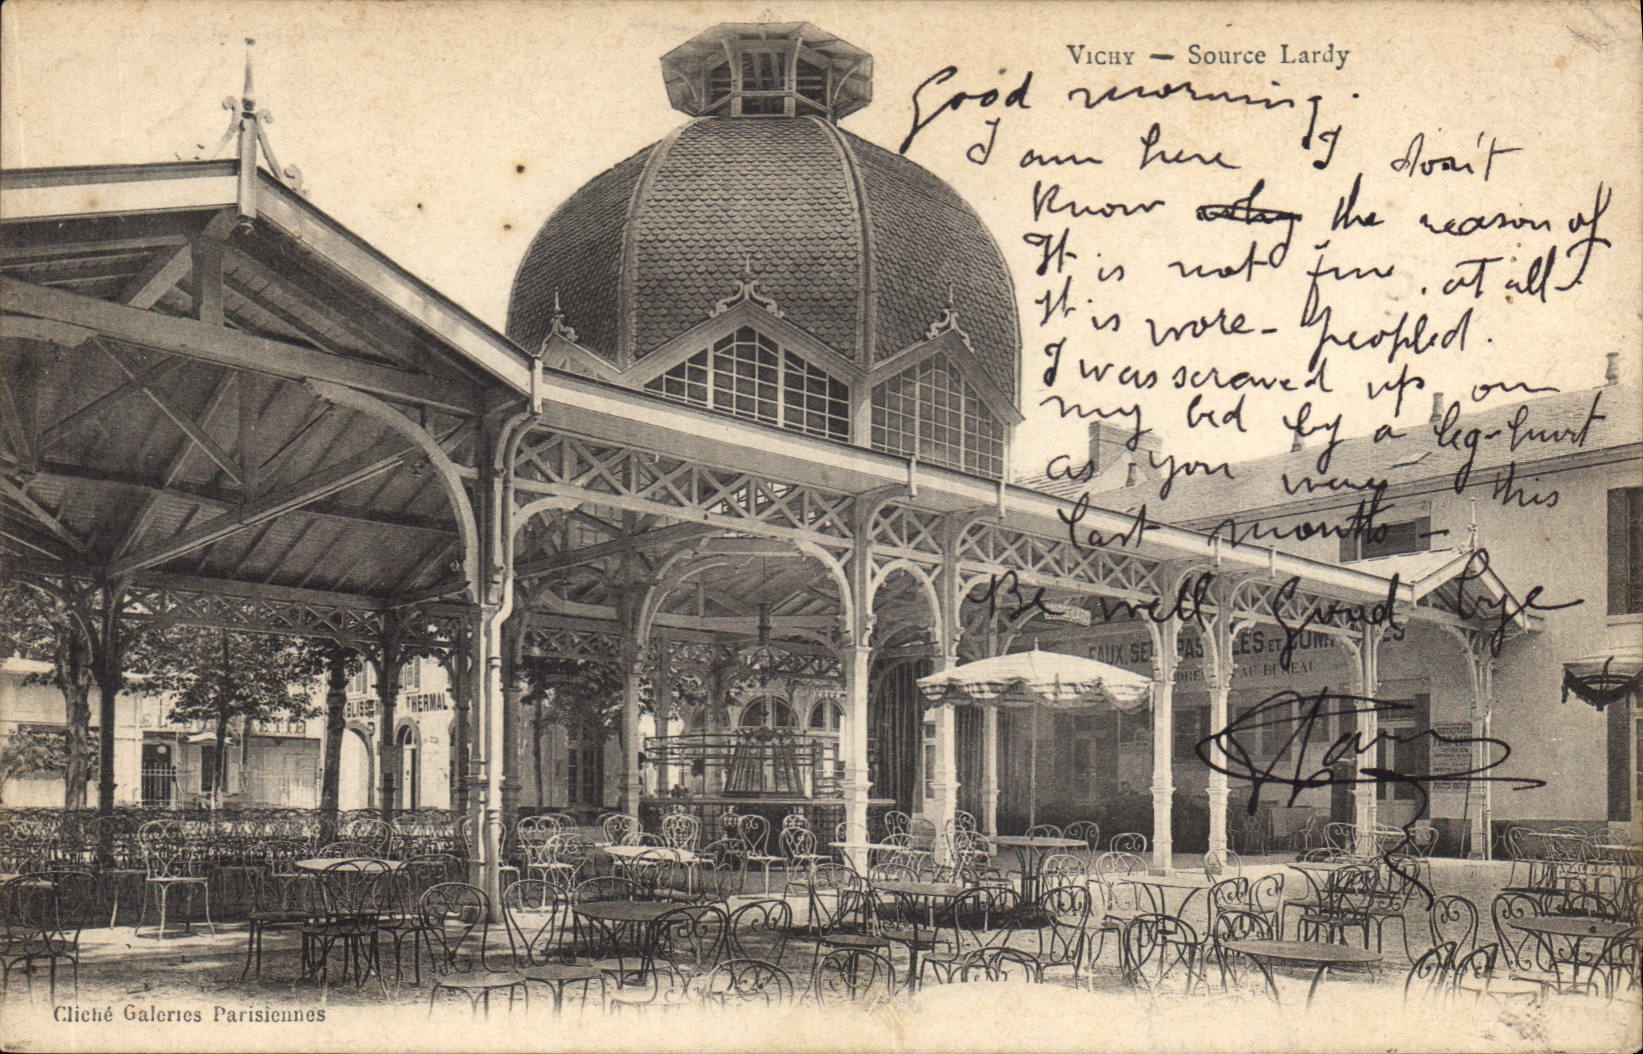 VICHY — Source Lardy
Good morning.
I am here I don't
know why the reason of
It is not fine, at all.
It is more-peopled.
I was scraved up on
my bed by a leg-hurt
as you were this
last months —
Be well. Good bye
EAUX, SELS, PASTILLES ET COMPRIMÉS
AU BUREAU
THERMAL
Cliché Galeries Parisiennes